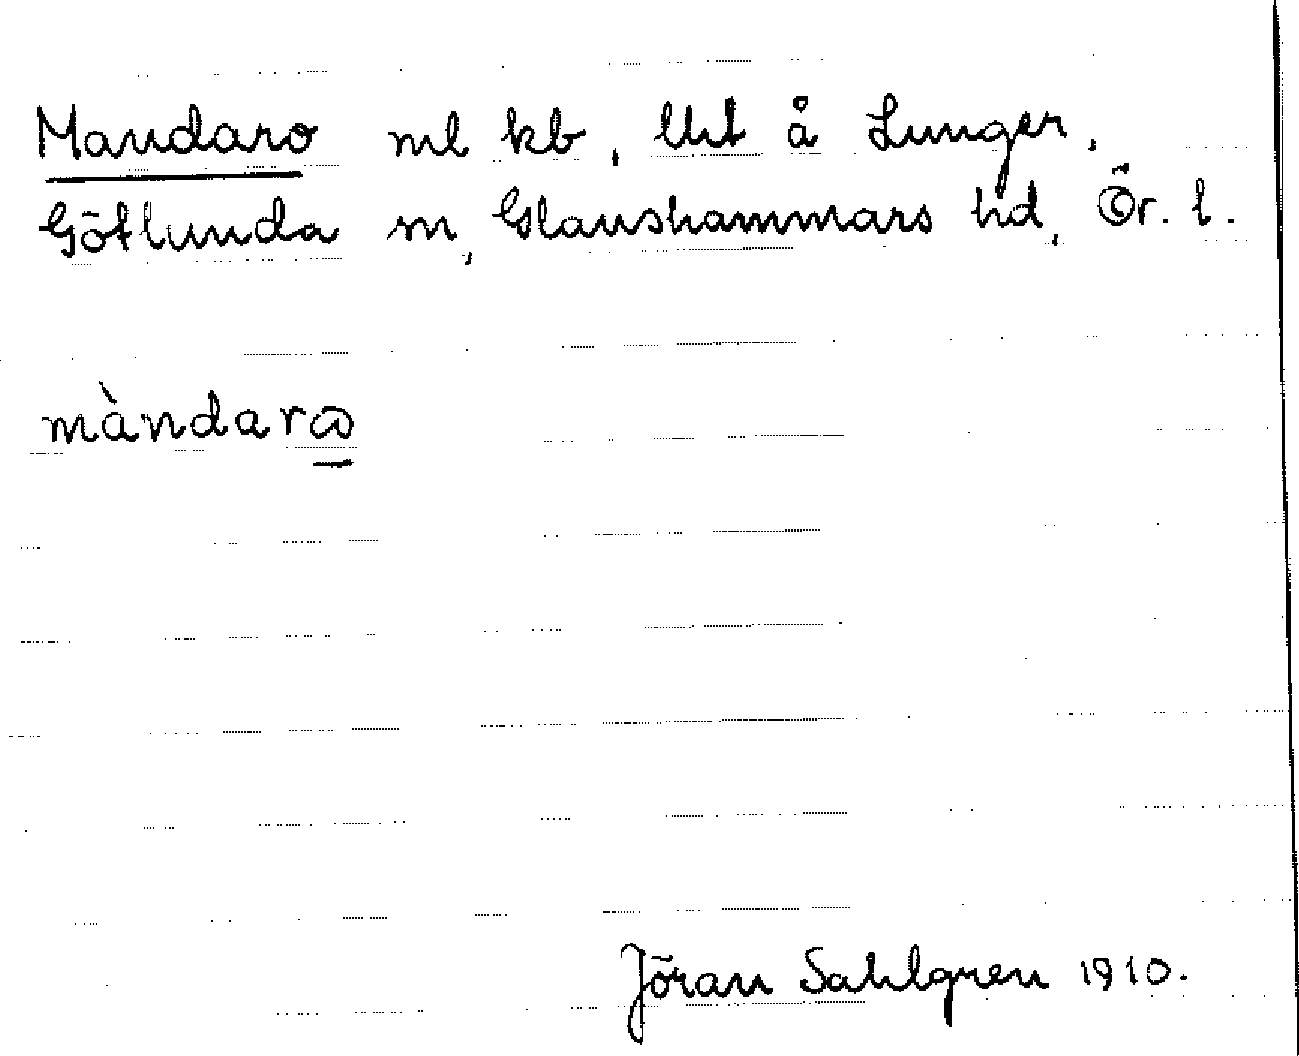 Mandaro ml kb, Uht å Lunger,
Götlunda sn, Glanshammars hd, Ör. l.
màndarꭃ
Jöran Sahlgren 1910.